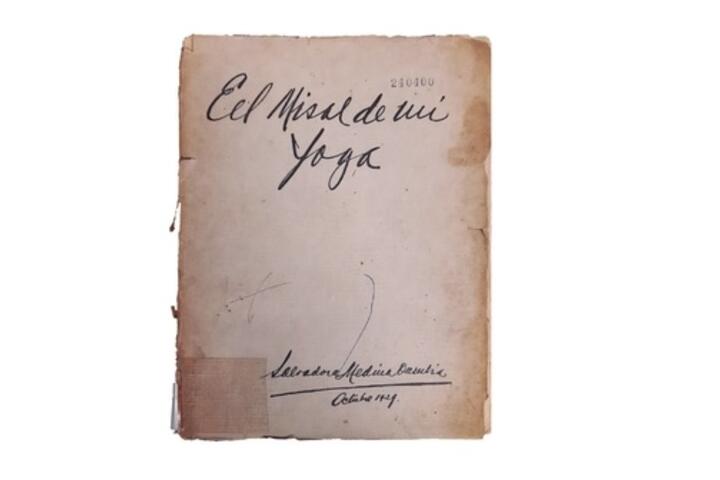 240400
Eel Misal de mi
Yoga
Salvadora Medina Onrubia
Octubre 1929.